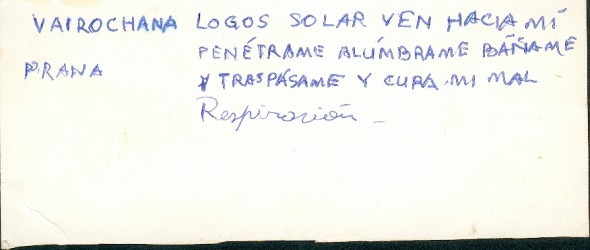 VAIROCHANA LOGOS SOLAR VEN HACIA MÍ
PENÉTRAME ALÚMBRAME BÁÑAME
PRANA Y TRASPÁSAME Y CURA MI MAL
Respiración _